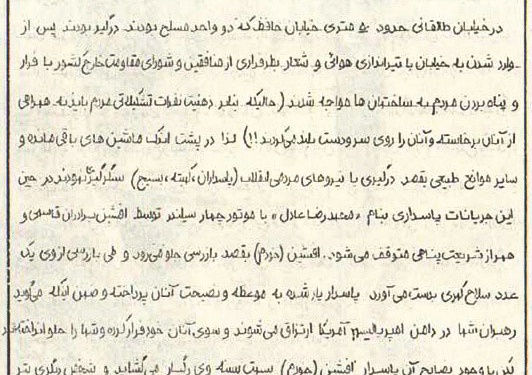 در خیابان طالقانی حدود ۵۰ متری خیابان حافظ که دو واحد مسلح بودند درگیر بودند پس از
وارد شدن به خیابان با تیراندازی هوائی و شعار بطرفداری از منافقین و شورای مقاومت خارج کشور با فرار
و پناه بردن مردم به ساختمان ها مواجه شدند (حالیکه بنابر ذهنیت نفرات تشکیلاتی مردم باید به همراهی
از آنان برخاسته و آنان را روی سر و دست بلند می‌کردند!!) لذا در پشت اتاقک ماشین های باقی مانده و
سایر موانع طبیعی بقصد درگیری با نیروهای مردمی انقلاب (پاسداران، کمیته، بسیج) سنگر گیر نمودند در حین
این جریانات پاسداری بنام «محمدرضا عادل» با موتور چهار سیلندر توسط افشین برادران قاسمی و
مهراز شریعت پناهی متوقف می‌شود. افشین (خودم) بقصد بازرسی جلو می‌رود و طی بازرسی از وی یک
عدد سلاح کمری بدست می‌آورد پاسدار یاد شده به موعظه و نصیحت آنان پرداخته و ضمن اینکه می‌گوید
رهبران شما در دامن امپریالیسم آمریکا ارتزاق می‌شوند و سوی آنان خود فرار کرده و شما را جلو انداخته‌اند
لکن با وجود نصایح آن پاسدار افشین (خودم) بسمت سینه وی رگبار می‌گشاید و شخص دیگری نیز